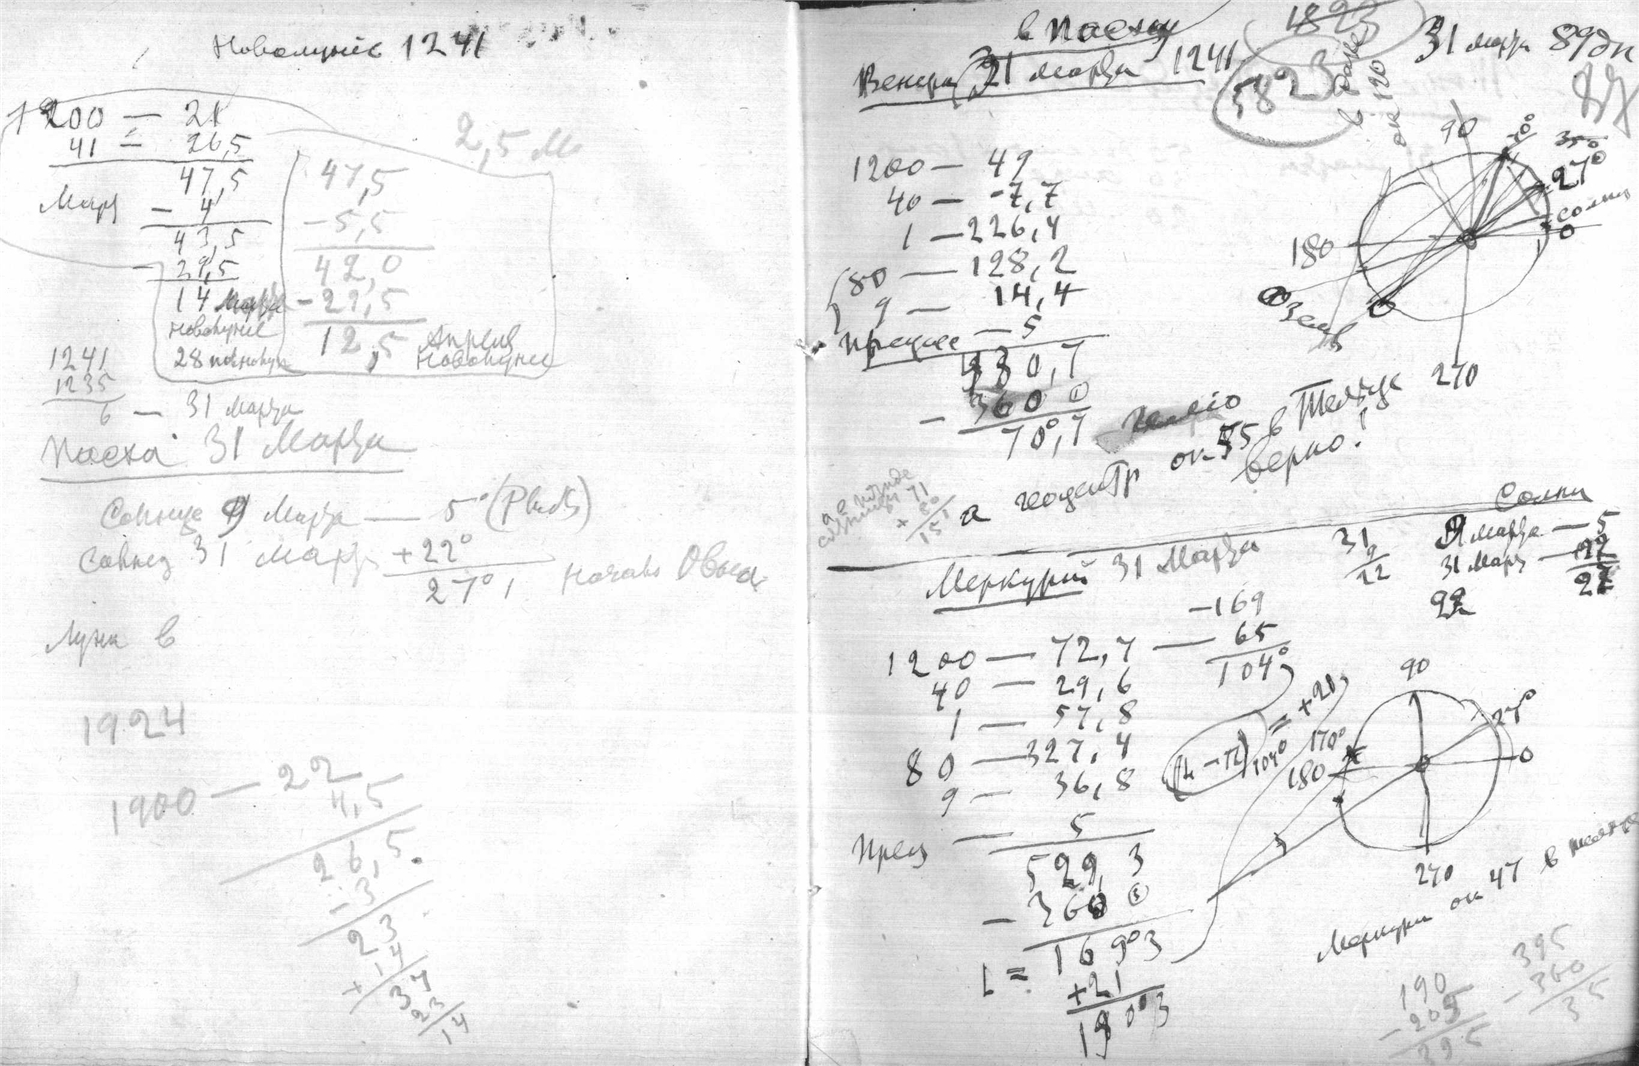 Новолуние 1241
1200 — 21
41 = 26,5
47,5
Март — 4
43,5
— 29,5
14 Марта
новолуние
28 полнолун
2,5 м
47,5
— 5,5
42,0
— 29,5
12,5 Апреля
Новолуние
1241
1235
6 — 31 Марта
Пасха 31 Марта
Солнце 9 Марта — 5° (Рыб)
Солнце 31 Марта +22°
27°, начало Овна
Луна в
1924
1900 — 22
4,5
26,5
3
23
+14
37
23
14
в Пасху
Венера (31 Марта 1241
1823
58°23
в Раке
ок 120
31 марта 89дн
1200 — 49
40 — -7,7
1 — 226,4
80 — 128,2
9 — 14,4
Прецес — 5
430,7
— 360 0
70°,7
90
70°
350
27°
Солнце
0
180
Земля
270
а геоцентр ок 55 в Тельце
верно!
Меркурий 31 Марта
31
9
22
Солнц
9 Марта — 5
31 Март — 22
27
92
1200 — 72,7 —
-169
65
104°
40 — 29,6
1 — 57,8
80 — 327,4
9 — 36,8
Прец — 5
529,3
— 360 0
L = 169°3
+21
190°3
(L — П) 104° = +21
90
27°
0
170°
180
270
Меркурий ок 47 в Тельце
190
— 205
395
395
— 360
35